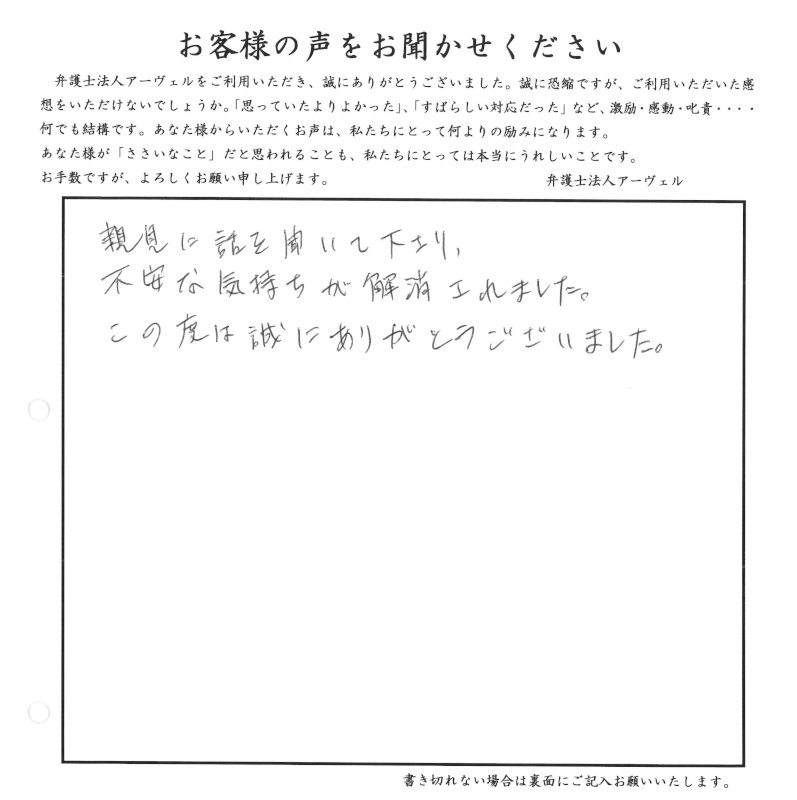 お客様の声をお聞かせください
弁護士法人アーヴェルをご利用いただき、誠にありがとうございました。誠に恐縮ですが、ご利用いただいた感
想をいただけないでしょうか。「思っていたよりよかった」、「すばらしい対応だった」など、激励・感動・叱責・・・・
何でも結構です。あなた様からいただくお声は、私たちにとって何よりの励みになります。
あなた様が「ささいなこと」だと思われることも、私たちにとっては本当にうれしいことです。
お手数ですが、よろしくお願い申し上げます。 弁護士法人アーヴェル
親見に話を聞いて下さり、
不安な気持ちが解消されました。
この度は誠にありがとうございました。
書き切れない場合は裏面にご記入お願いいたします。